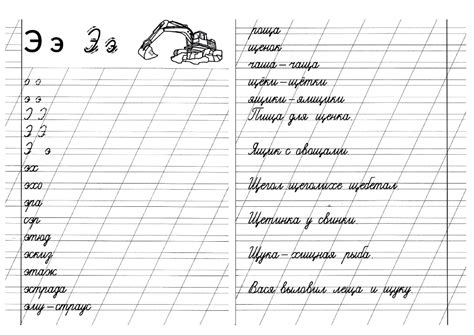 Э э Э э
э э
Э Э
Э Э
Э э
эх
эхо
эра
сэр
этюд
эскиз
этаж
эстрада
эму – страус
роща
щенок
чаша – чаща
щёки – щётки
ящики – ямщики
Пища для щенка.
Ящик с овощами.
Щегол щеголихе щебетал.
Щетинка у свинки.
Щука – хищная рыба.
Вася выловил леща и щуку.